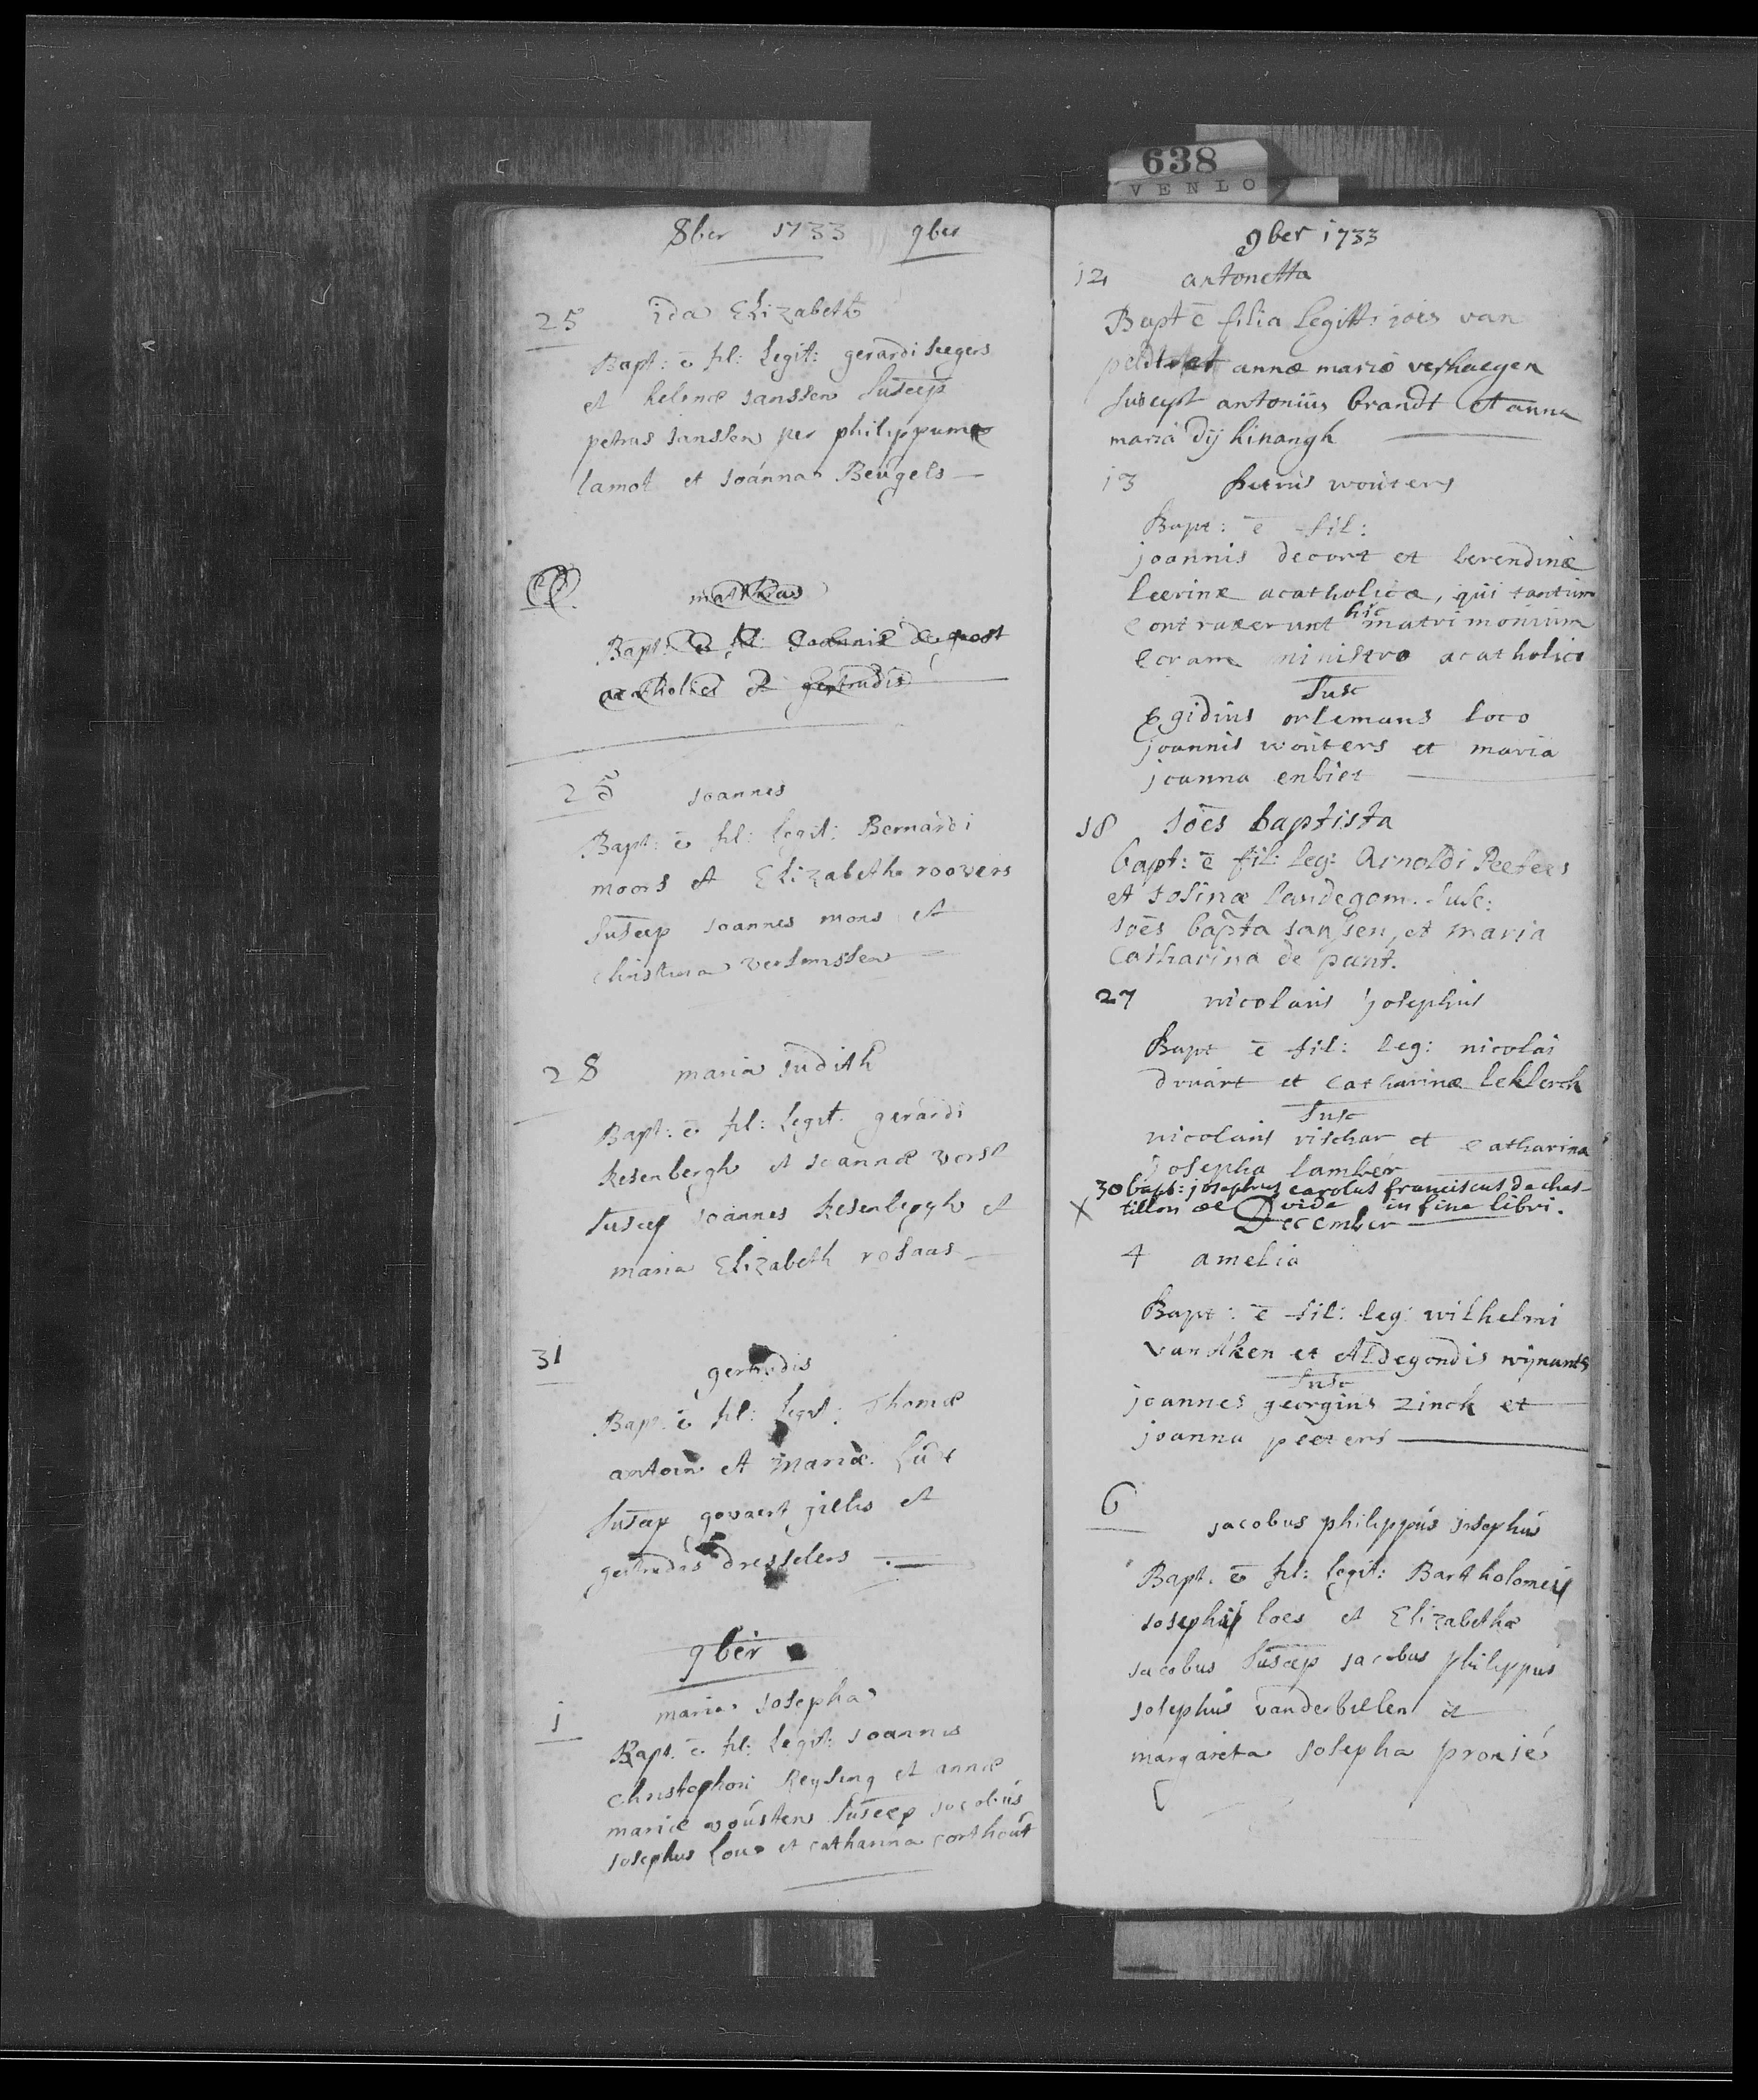 638
VENLO
8ber 1733 9ber
25 ida Elizabeth
Bapt: ē fil: legit: gerardi seegers
et helenæ Janssen Suscep
petrus Janssen per philippum
lamot et Joanna Beugels
mathias
Bapt: ē fil: Joannis de post
acatholici et gertrudis
25 Joannes
Bapt: ē fil: legit: Bernardi
moors et Elizabethæ roovers
Suscep Joannes mons et
christina
28 maria Judith
Bapt: ē fil: legit: gerardi
Resenbergh et Joannæ vorst
Suscep Joannes Resenbergh et
maria Elizabeth rosaas
31 gertrudis
Bapt: ē fil: legit: Thomæ
antoin et mariæ
Suscep govaert jillis et
gertrudes dresselers
9ber
1 maria Josepha
Bapt. ē fil: legit: Joannis
christophori Reyling et annæ
mariæ wousten Suscep jacobus
Josephus et catharina corthout
9ber 1733
12 antonetta
Bapt ē filia legitt: jois van
peldt et annæ mariæ verhaegen
suscept antonius brandt et anna
maria dij kinangh
13 petrus wouters
Bapt: ē fil:
joannis decort et berendinæ
leerinæ acatholicæ, qui tantum
contraxerunt hic matrimonium
coram ministro acatholico
Susc
Egidius orlemans loco
joannis wouters et maria
joanna enbiet
18 Joēs baptista
bapt: ē fil: leg: Arnoldi Peeters
et Josinæ landegom. Susc:
Joēs bapta Janssen, et maria
Catharina de punt.
27 nicolaus josephus
Bapt ē fil: leg: nicolai
druart et catharinæ leklerck
Susc
nicolaus vischar et catharina
josepha lamber
30 bapt: josephus carolus franciscus de chas-
X tillon æ vide in fine libri.
December
4 amelia
Bapt: ē fil: leg: wilhelmi
van Aken et Aldegondis wijnants
Susc
joannes georgius zinck et
joanna peeters
6 jacobus philippus josephus
Bapt. ē fil: legit: Bartholomei
Josephi loes et Elizabethæ
Jacobus Suscep jacobus philippus
Josephus vanderbellen et
margareta Josepha pronié